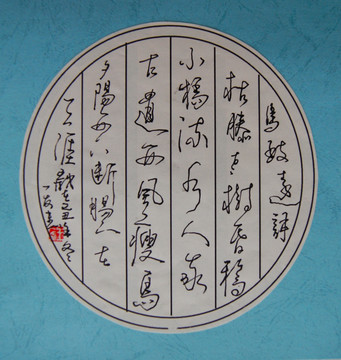 馬致遠詩
枯藤老樹昏鴉
小橋流水人家
古道西風瘦馬
夕陽西下斷腸人在
天涯